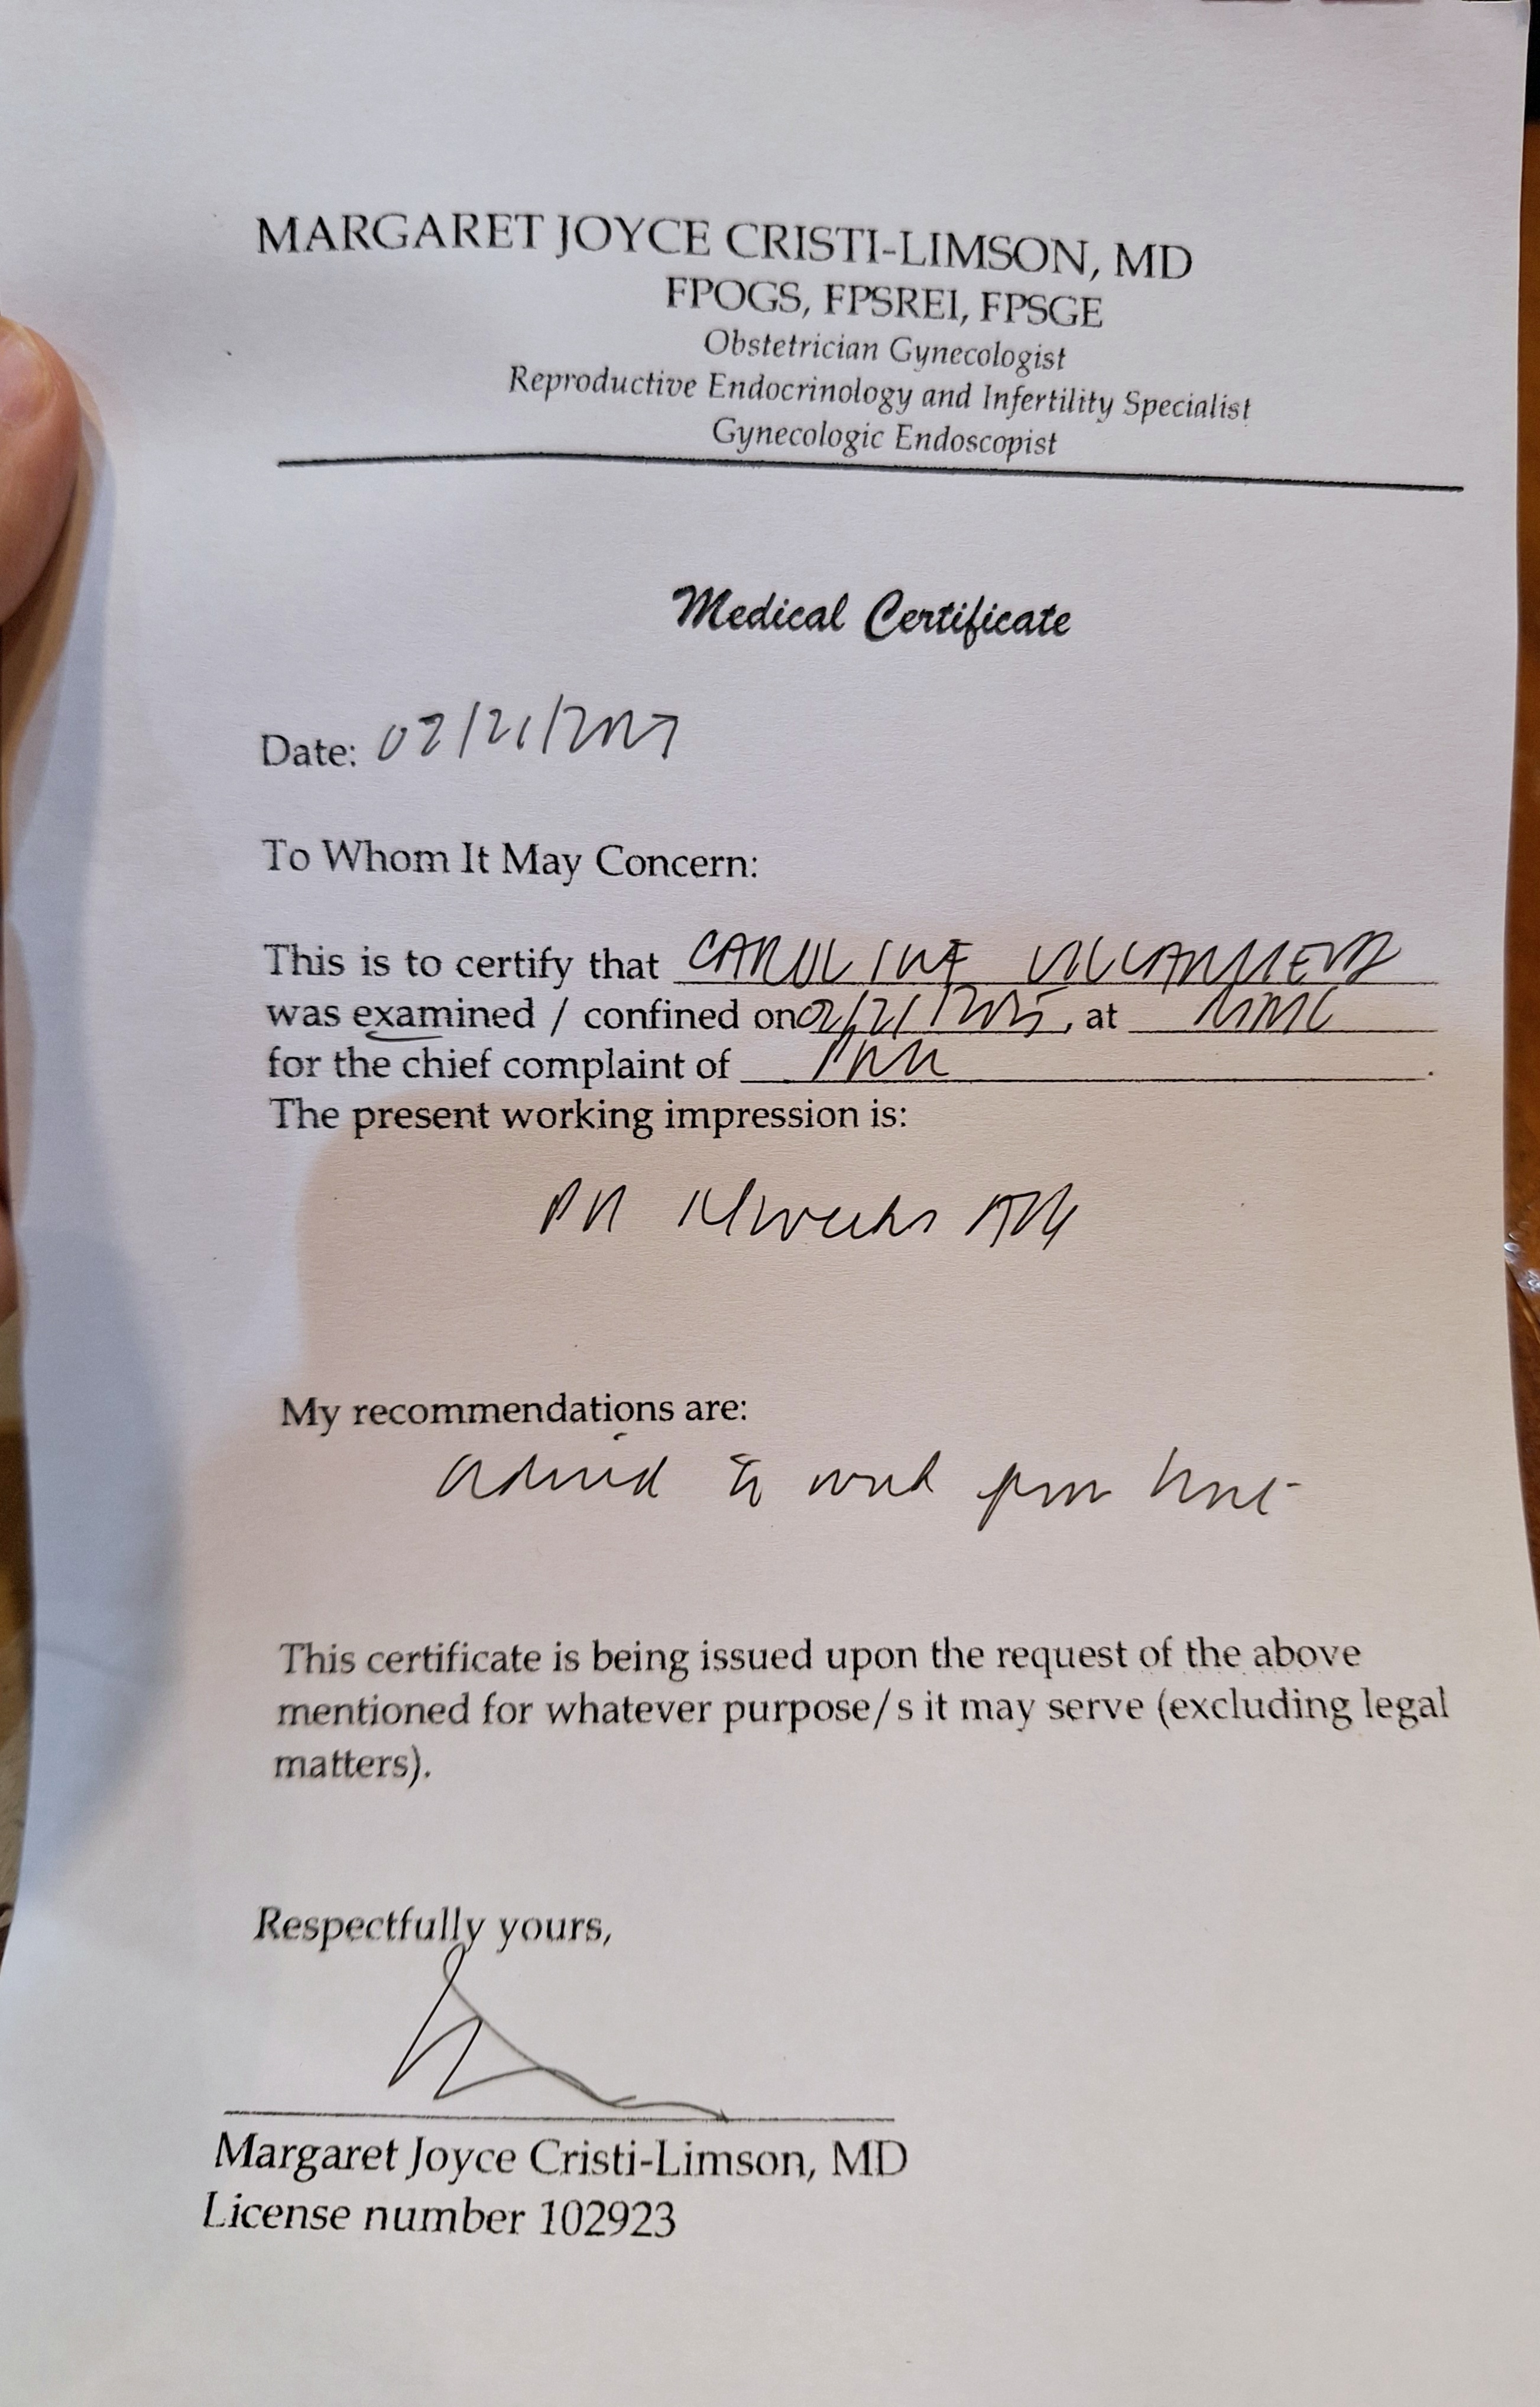 MARGARET JOYCE CRISTI-LIMSON, MD
FPOGS, FPSREI, FPSGE
Obstetrician Gynecologist
Reproductive Endocrinology and Infertility Specialist
Gynecologic Endoscopist
Medical Certificate
Date:
To Whom It May Concern:
This is to certify that CAROLINE
was examined / confined on 02/21/2025, at
for the chief complaint of
The present working impression is:
14 weeks
My recommendations are:
to work from home
This certificate is being issued upon the request of the above
mentioned for whatever purpose/s it may serve (excluding legal
matters).
Respectfully yours,
Margaret Joyce Cristi-Limson, MD
License number 102923